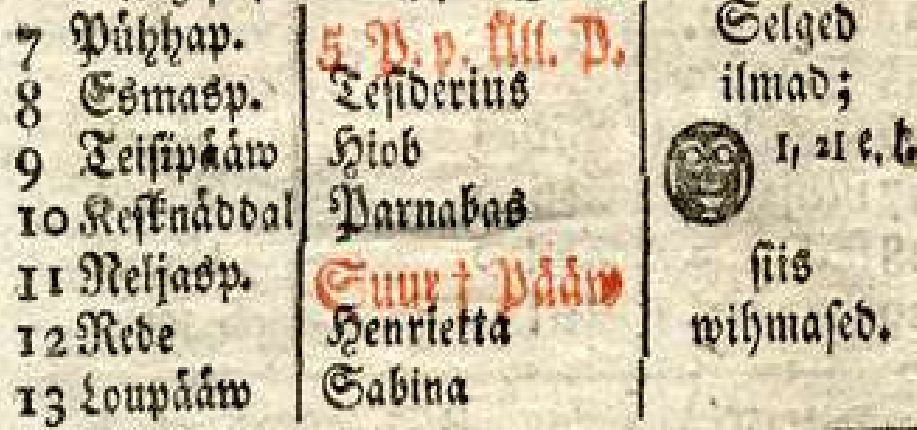 7 Pühhap. 5 P. p. Üll. P. Selged
8 Esmasp. Tesiderius ilmad;
9 Teisipääw Hiob 1, 21 e. k.
10 Kesknäddal Parnabas
11 Neljasp. Suur † Pääw siis
12 Rede Henrietta wihmased.
13 Loupääw Sabina